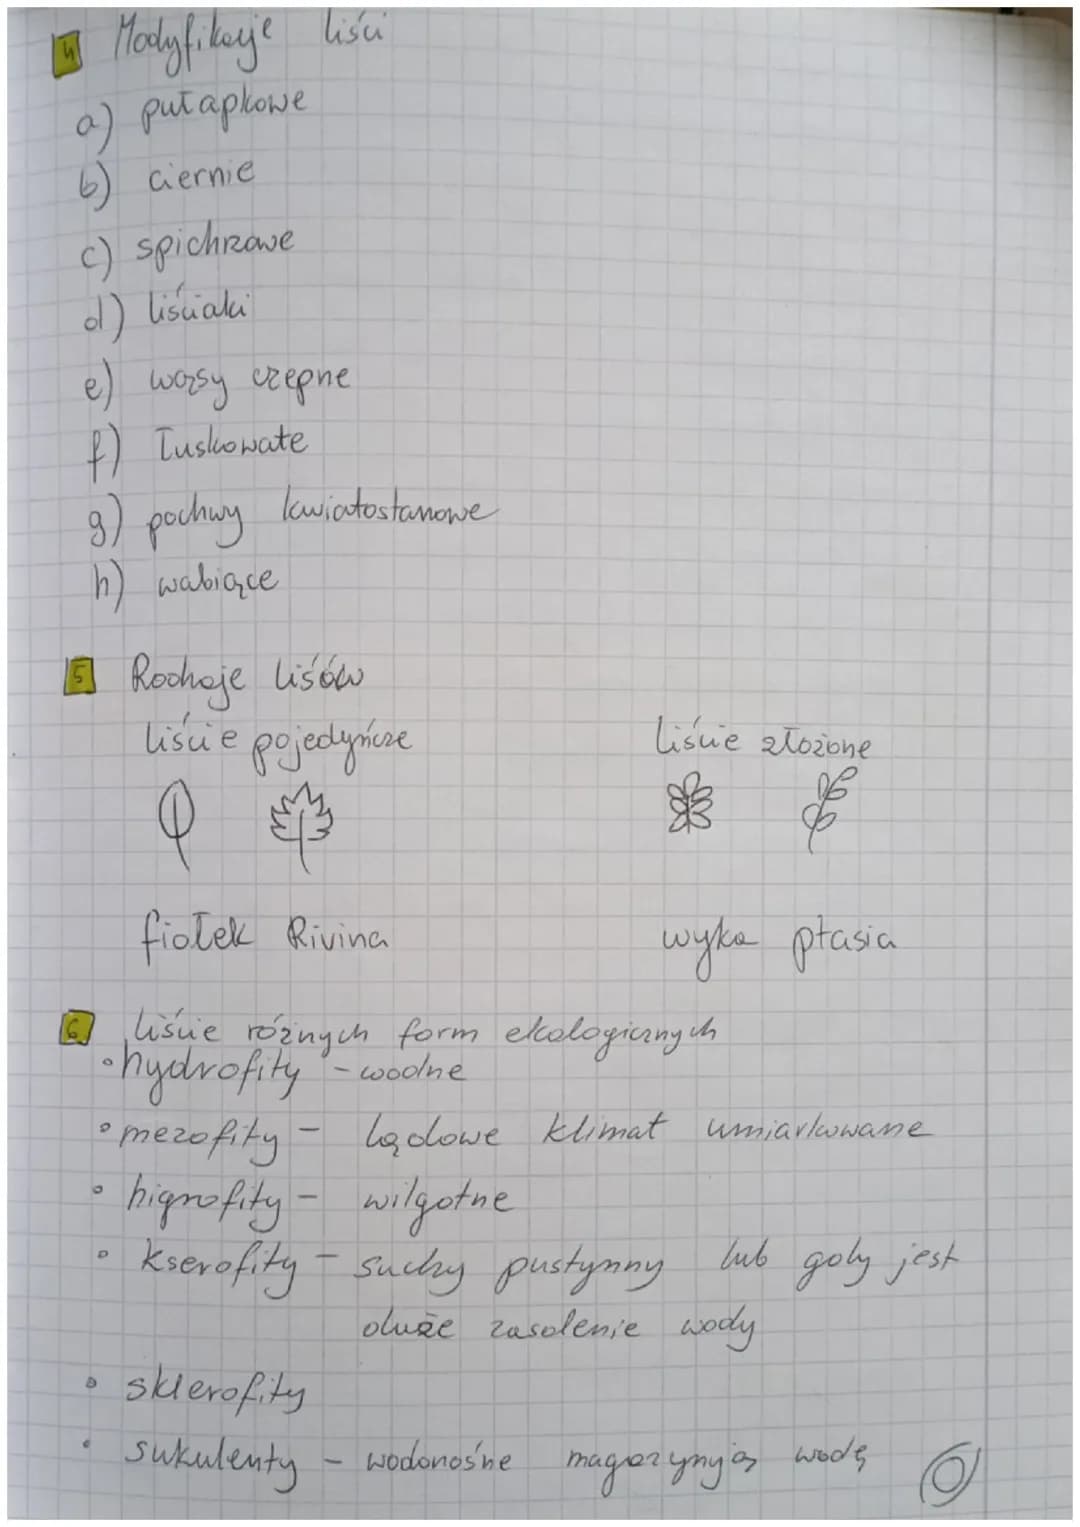 4 Modyfikacje liści
a) pułapkowe
b) ciernie
c) spichrzowe
d) liściaki
e) wąsy czepne
f) łuskowate
g) pochwy kwiatostanowe
h) wabiące
5 Rodzaje liśów
liście pojedyńcze liście złożone
fiołek Rivina wyka ptasia
6 liście różnych form ekologicznych
• hydrofity - wodne
• mezofity - lądowe klimat umiarkowane
• higrofity - wilgotne
• kserofity - suchy pustynny lub gdy jest
duże zasolenie wody
• sklerofity
• sukulenty - wodonośne magazynyją wodę